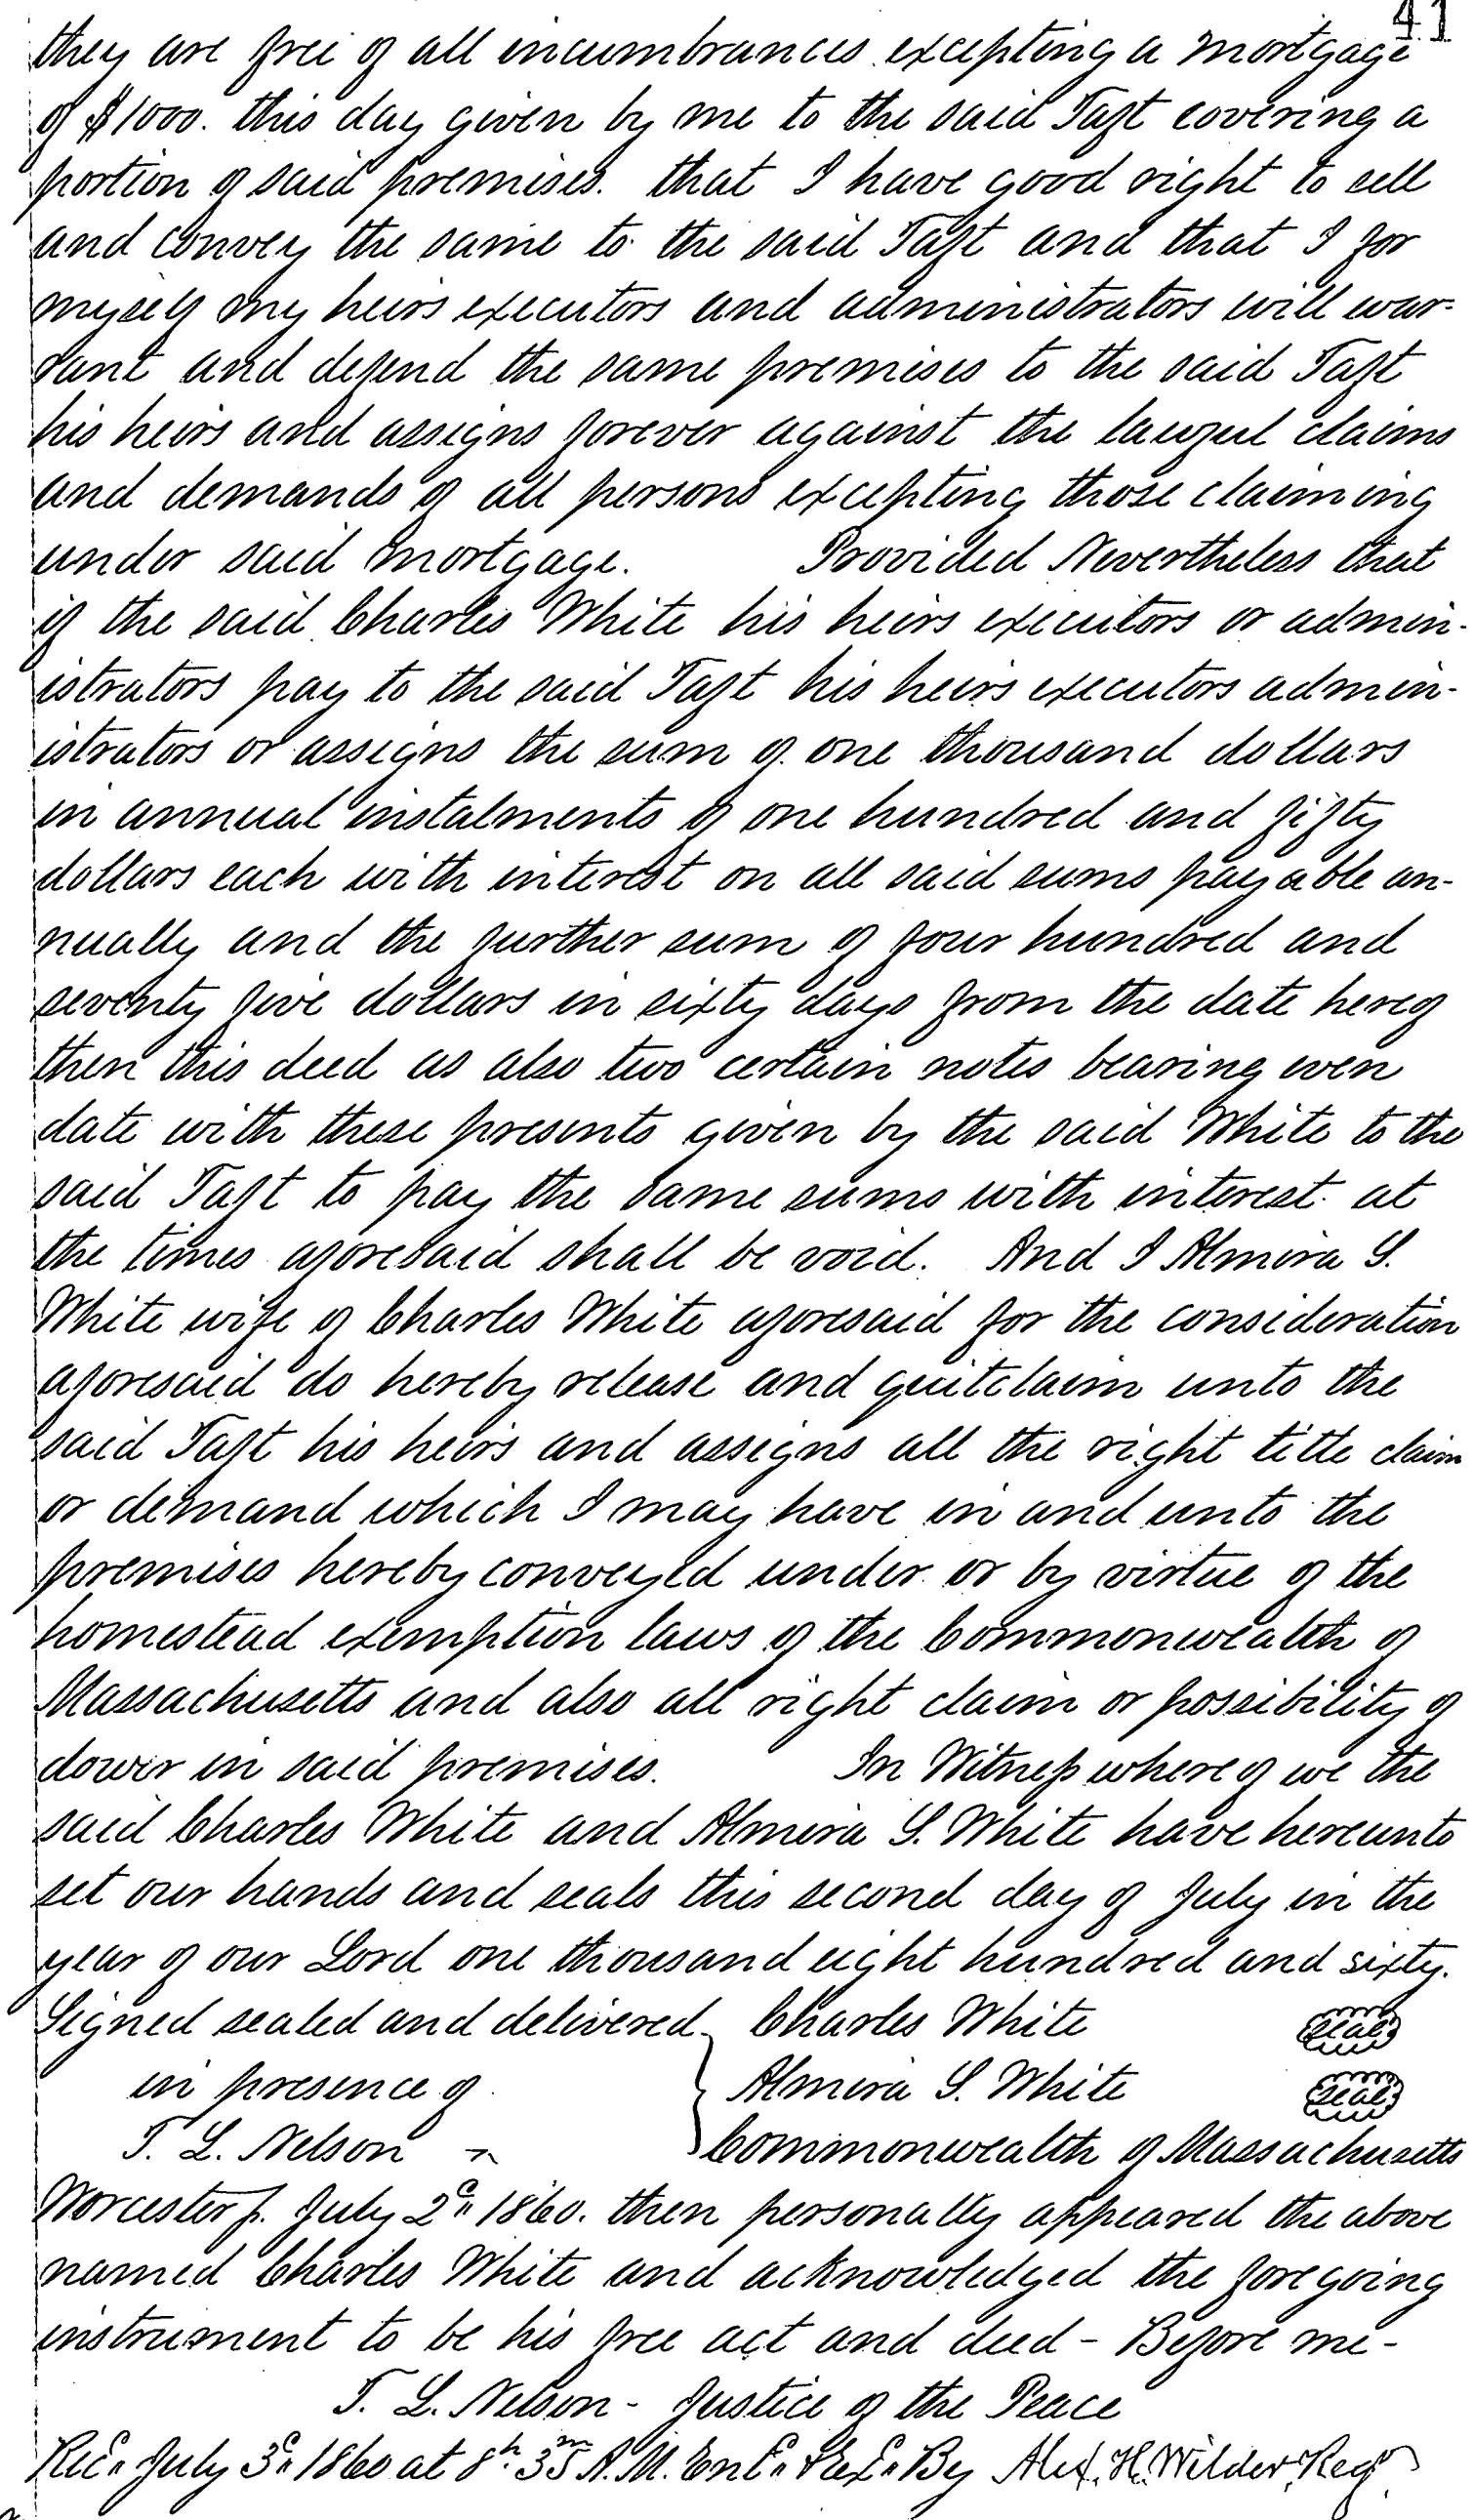 41
they are free of all incumbrances excepting a mortgage
of $1000. this day given by me to the said Taft covering a
portion of said premises. that I have good right to sell
and convey the same to the said Taft and that I for
myself my heirs executors and administrators will war-
rant and defend the same premises to the said Taft
his heirs and assigns forever against the lawful claims
and demands of all persons excepting those claiming
under said mortgage. Provided Nevertheless that
if the said Charles White his heirs executors or admin-
istrators pay to the said Taft his heirs executors admin-
istrators or assigns the sum of one thousand dollars
in annual instalments of one hundred and fifty
dollars each with interest on all said sums payable an-
nually and the further sum of four hundred and
seventy five dollars in sixty days from the date hereof
then this deed as also two certain notes bearing even
date with these presents given by the said White to the
said Taft to pay the same sums with interest at
the times aforesaid shall be void. And I Almira S.
White wife of Charles White aforesaid for the consideration
aforesaid do hereby release and quitclaim unto the
said Taft his heirs and assigns all the right title claim
or demand which I may have in and unto the
premises hereby conveyed under or by virtue of the
homestead exemption laws of the Commonwealth of
Massachusetts and also all right claim or possibility of
dower in said premises. In Witness whereof we the
said Charles White and Almira S. White have hereunto
set our hands and seals this second day of July in the
year of our Lord one thousand eight hundred and sixty.
Signed sealed and delivered Charles White seal
in presence of Almira S. White seal
T. L. Nelson Commonwealth of Massachusetts
Worcester ss. July 2d 1860. then personally appeared the above
named Charles White and acknowledged the foregoing
instrument to be his free act and deed - Before me -
T. L. Nelson - Justice of the Peace
Rec'd July 3d 1860 at 8h 35m A.M. Ent'd & Ex'd By Alex. H. Wilder, Reg'r